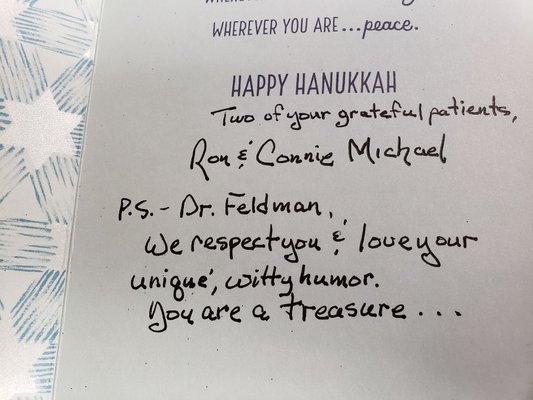 WHEREVER YOU ARE...peace.
HAPPY HANUKKAH
Two of your grateful patients,
Ron & Connie Michael
P.S. - Dr. Feldman,
We respect you & love your
unique, witty humor.
You are a treasure...